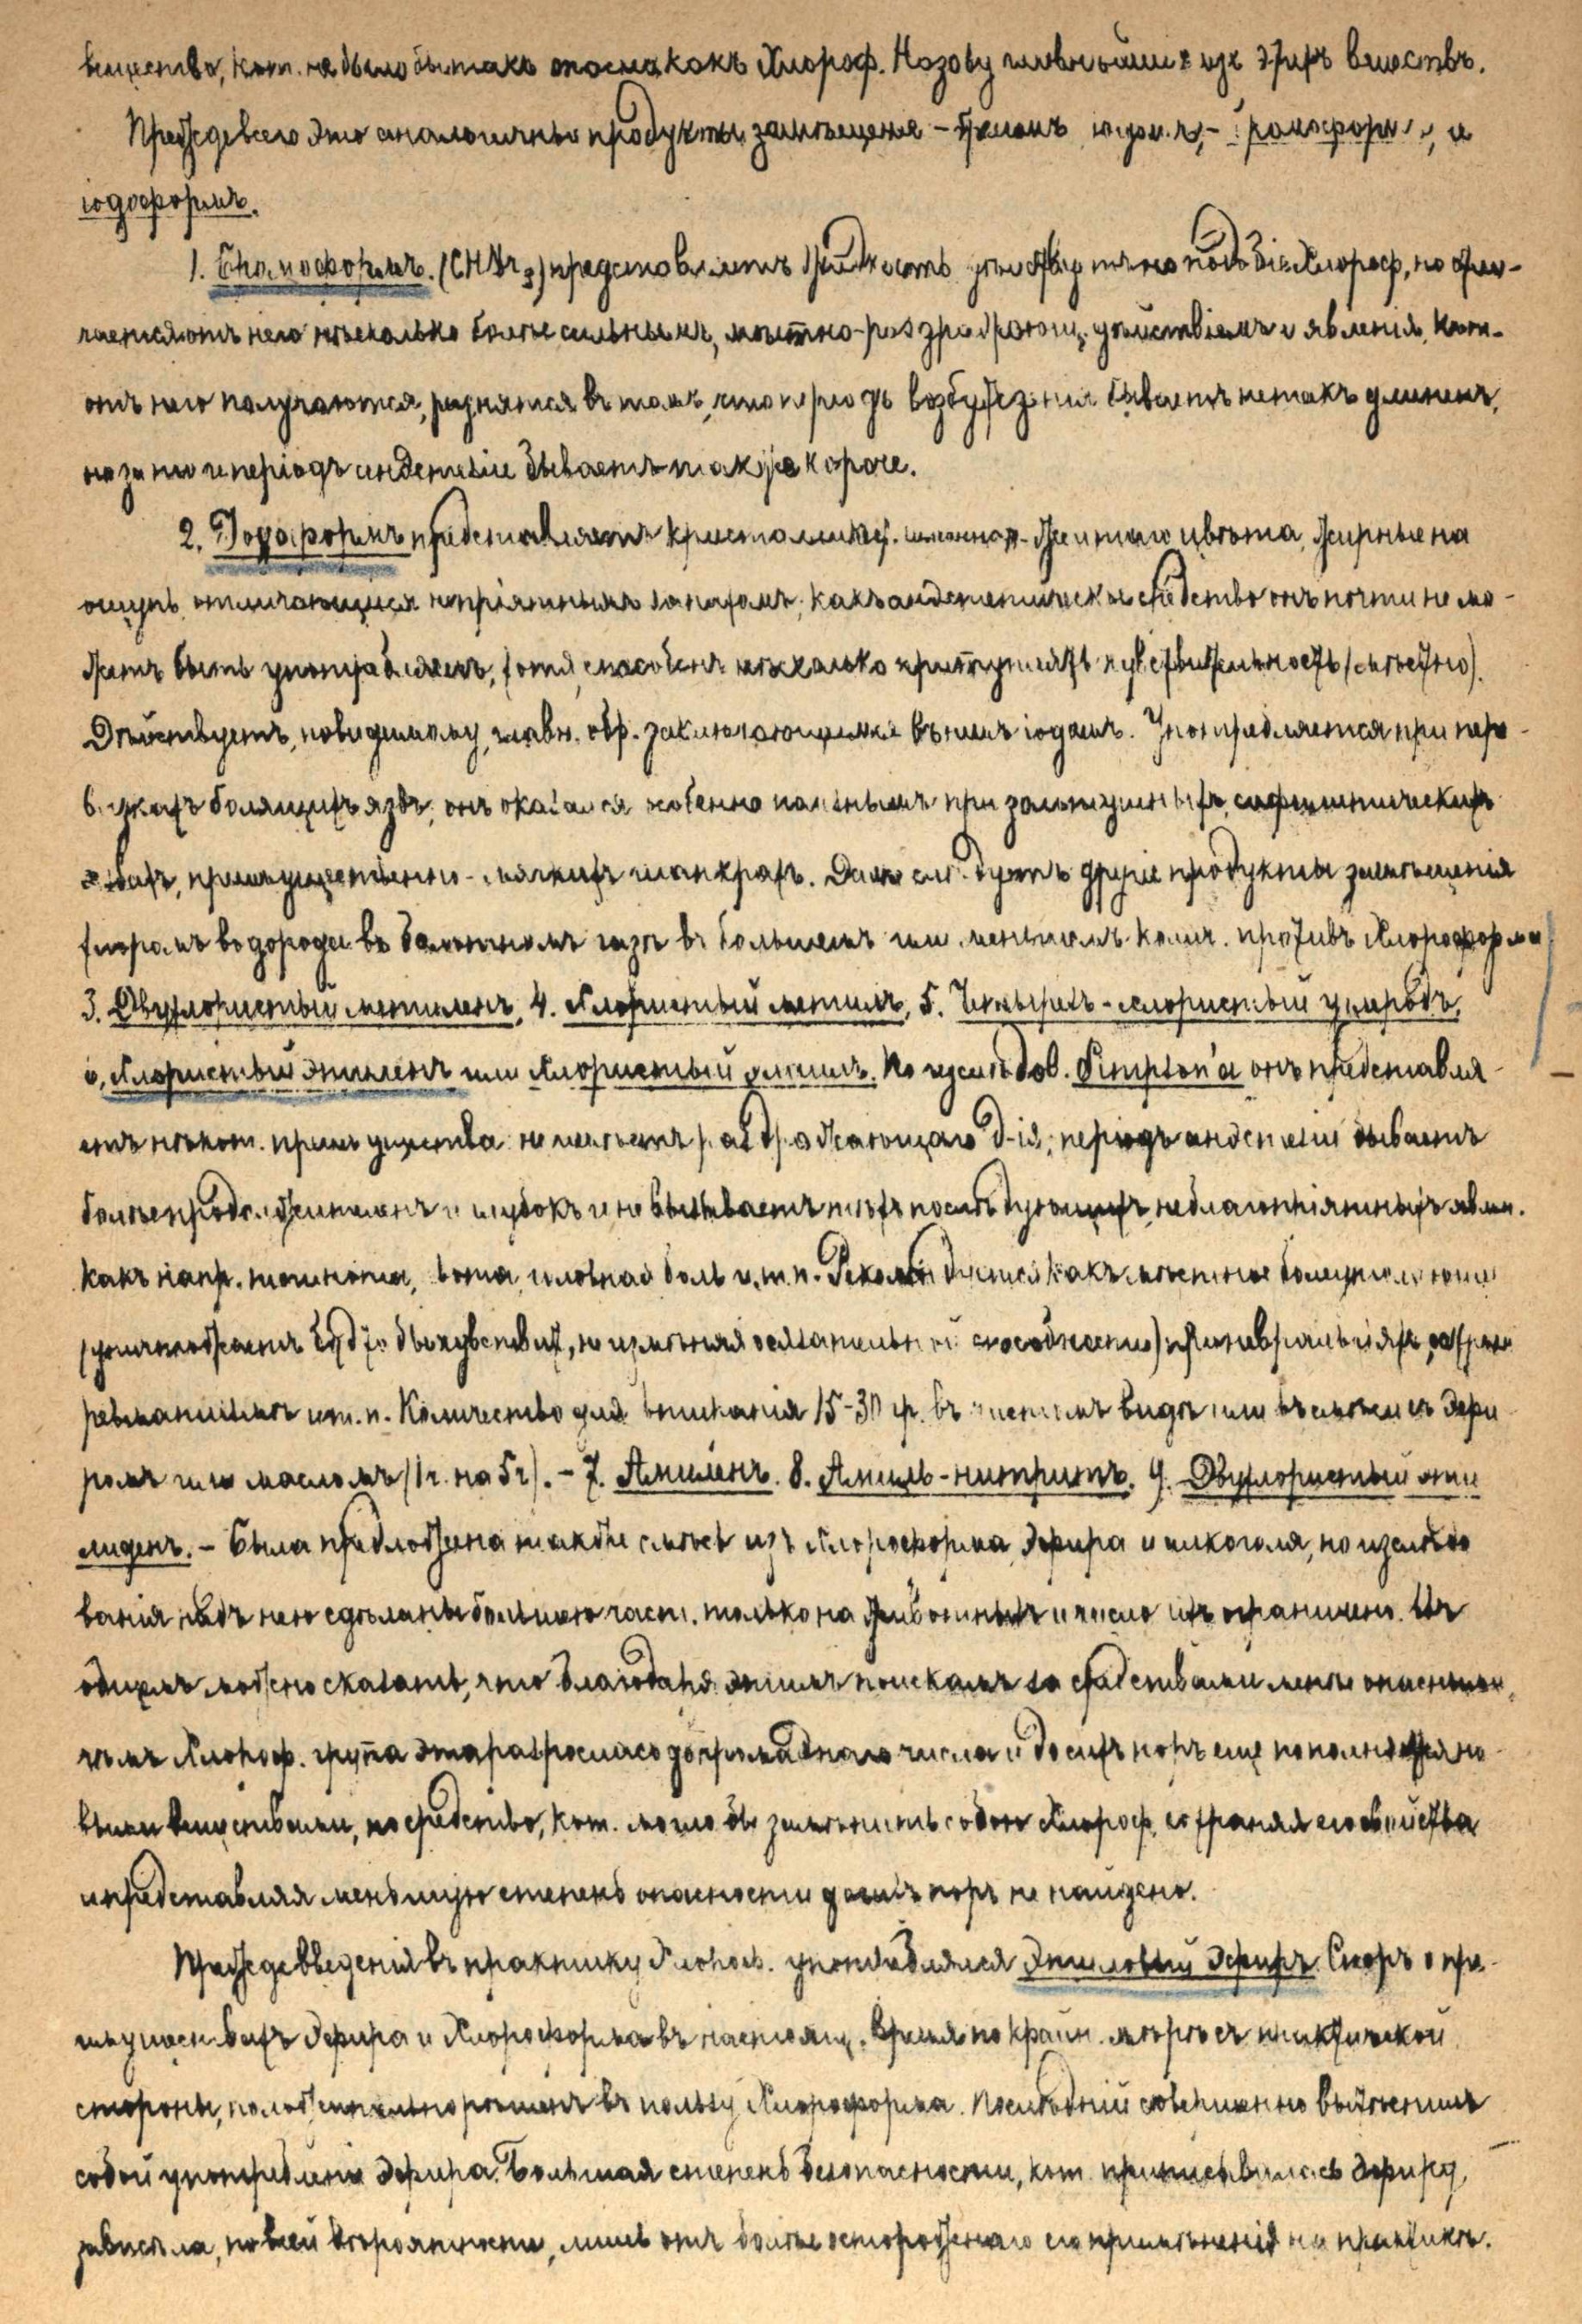 вещество, кот. не было бы такъ опасно какъ Хлороф. Назову главнѣйшіе изъ этихъ веществъ.
Прежде всего это аналогичные продукты замѣщенія – бромомъ іодомъ, – бромоформъ, и
іодоформъ.
1. Бромоформъ. (CHBr3) представляетъ жидкость дѣйствующую на подобіе Хлороф, но отли-
чается отъ него нѣсколько болѣе сильнымъ, мѣстно-раздражающ. дѣйствіемъ и явленія, кот.
отъ него получаются, разнятся въ томъ, что періодъ возбужденія бываетъ не такъ длиненъ,
но за то и періодъ анэстезіи бываетъ также короче.
2. Іодоформъ представляетъ кристаллики, лимонно-желтаго цвѣта, жирные на
ощупь, отличающіеся непріятнымъ запахомъ; какъ анэстетическое средство онъ почти не мо-
жетъ быть употребляемъ, хотя способенъ нѣсколько притуплять чувствительность (мѣстно).
Дѣйствуетъ, повидимому, главн. обр. заключающимся въ немъ іодомъ. Употребляется при пере-
вязкахъ болящихъ язвъ; онъ оказался особенно полезнымъ при золотушныхъ, сифилитическихъ
язвахъ, преимущественно - мягкихъ шанкрахъ. Далѣе слѣдуютъ другіе продукты замѣщенія
хлоромъ водорода въ болотномъ газѣ въ большемъ или меньшемъ колич. противъ Хлороформа
3. Двухлористый метиленъ, 4. Хлористый метилъ, 5. Четырехъ-хлористый углеродъ,
6, Хлористый этиленъ или Хлористый этилъ. По изслѣдов. Simpson'a онъ представля-
етъ нѣкот. преимущества не имѣетъ раздражающаго д-ія; періодъ анэстезіи бываетъ
болѣе продолжителенъ и глубокъ и не вызываетъ тѣхъ послѣдующихъ неблагопріятныхъ явлен.
какъ напр. тошнота, рвота, головная боль и.т.п. Рекомендуется какъ мѣстное болеутоляющее
(уничтожаетъ будто бы чувствит, не измѣняя осязательной способности) при невралгіяхъ, остромъ
ревматизмѣ и т. п. Количество для вдыханія 15-30 гр. въ чистомъ видѣ или въ смѣси съ эфи
ромъ или масломъ (1ч. на 5ч). – 7. Амиленъ. 8. Амилъ-нитритъ. 9. Двухлористый эти
лиденъ. – Была предложена также смѣсь изъ Хлороформа, Эфира и алкоголя, но изслѣдо
ванія надъ нею сдѣланы большею част. только на животныхъ и число ихъ ограничено. Въ
общемъ можно сказать, что благодаря этимъ поискамъ за средствами менѣе опасными,
чѣмъ Хлороф. группа эта разрослась до громаднаго числа и до сихъ поръ еще пополняется но-
выми веществами, но средство, кот. могло бы замѣнить собою Хлороф, сохраняя его свойства
и представляя меньшую степень опасности до сихъ поръ не найдено.
Прежде введенія въ практику Хлороф. употреблялся Этиловый Эфиръ. Споръ о пре-
имуществахъ Эфира и Хлороформа въ настоящ. время по крайн. мѣрѣ съ практической
стороны, положительно рѣшенъ въ пользу Хлороформа. Послѣдній совершенно вытѣснилъ
собой употребленіе Эфира. Большая степень безопасности, кот. приписывалась Эфиру,
зависѣла, по всей вѣроятности, лишь отъ болѣе осторожнаго его примѣненія на практикѣ.